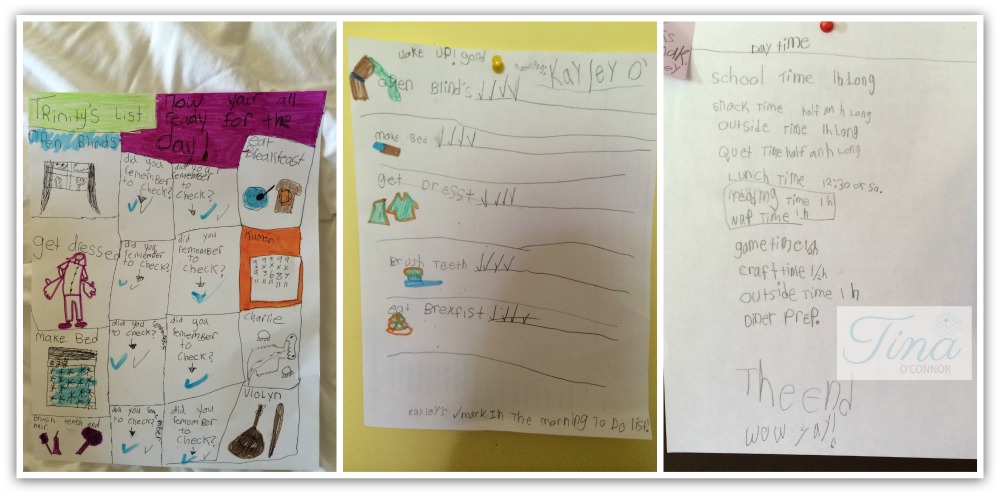 Trinity's List
Now your all
ready for the
day!
open Blinds
did you
remember
to check?
did you
remember
to
check?
eat
breakfeast
get dressed
did you
remember
to check?
did you
remember
to
check?
Kumon
Make Bed
did you
remember
to check?
did you
remember
to
check?
Charlie
food
Brush teeth and
hair
did you
remember
to check?
did you
remember
to
check?
Violyn
wake up! good
morning!
KayLey O'
open Blind's
make Bed
get Dresst
Brush Teeth
eat Brexfist
Kayley's √mark In The morning To Do list!
Day time
School Time 1h Long
snack time half an h Long
outside time 1h Long
Quiet Time half an h Long
Lunch Time 12:30 or so.
reading Time 1h
nap Time 1h
game time ½h
craft time ½h
outside time 1h
Diner Prep.
The end
wow yay!
Tina
O'CONNOR